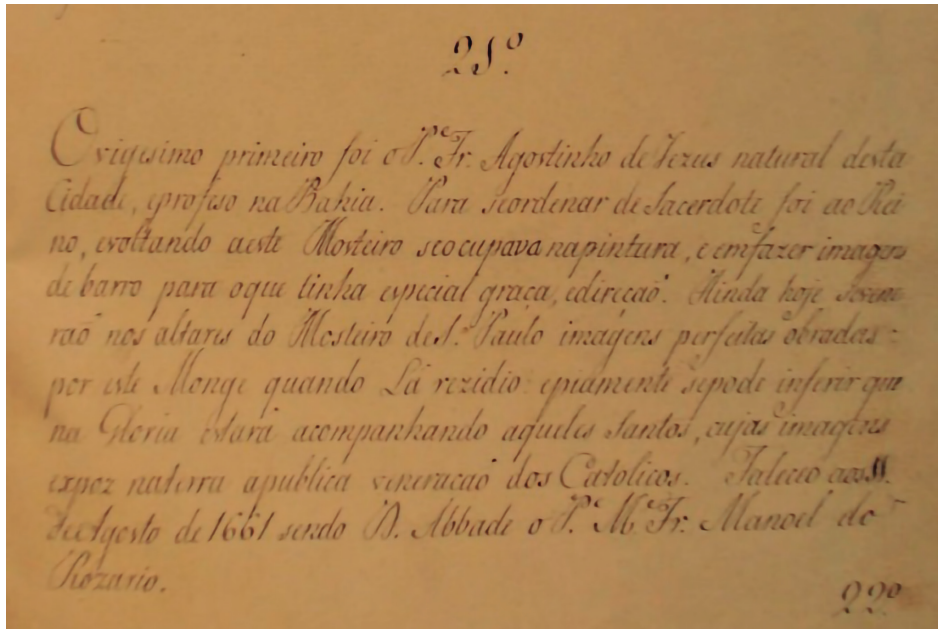 21º
O vigesimo primeiro foi o P. Fr. Agostinho de Jezus natural desta
Cidade, eprofeso na Bahia. Para seordenar de Sacerdote foi ao Rei
no, evoltando aeste Mosteiro seocupava napintura, e emfazer imagens
de barro para oque tinha especial graça, edirecaõ. Ainda hoje sevene
raõ nos altares do Mosteiro de S. Paulo imagens perfeitas obradas
por este Monge quando Lá rezidio: epiamente sepode inferir que
na Gloria estará acompanhando aqueles Santos, cujas imagens
expoz naterra apublica veneracaõ dos Catolicos. Faleceo aos 11
de Agosto de 1661 sendo D. Abbade o P. M. Fr. Manoel do
Rozario.
22º